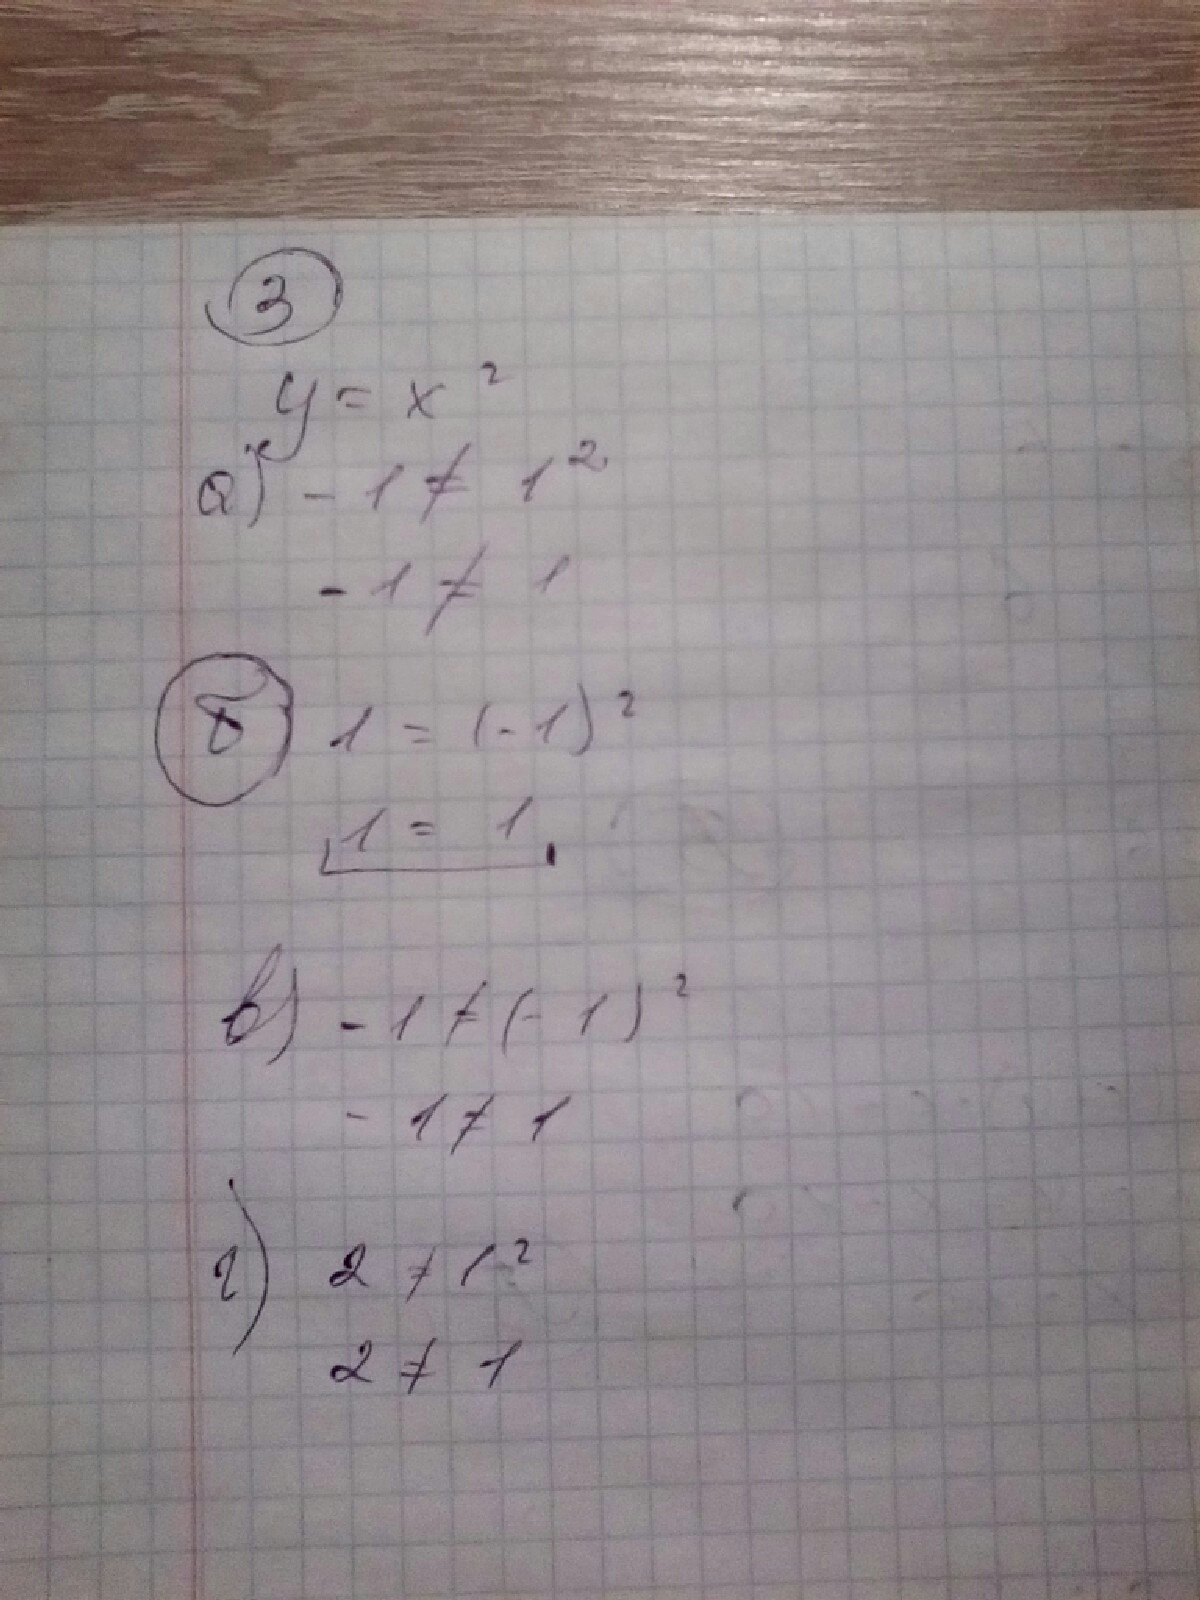 3
y = x²
а) - 1 ≠ 1²
- 1 ≠ 1
б 1 = (- 1)²
1 = 1
в) - 1 ≠ (- 1)²
- 1 ≠ 1
г) 2 ≠ 1²
2 ≠ 1